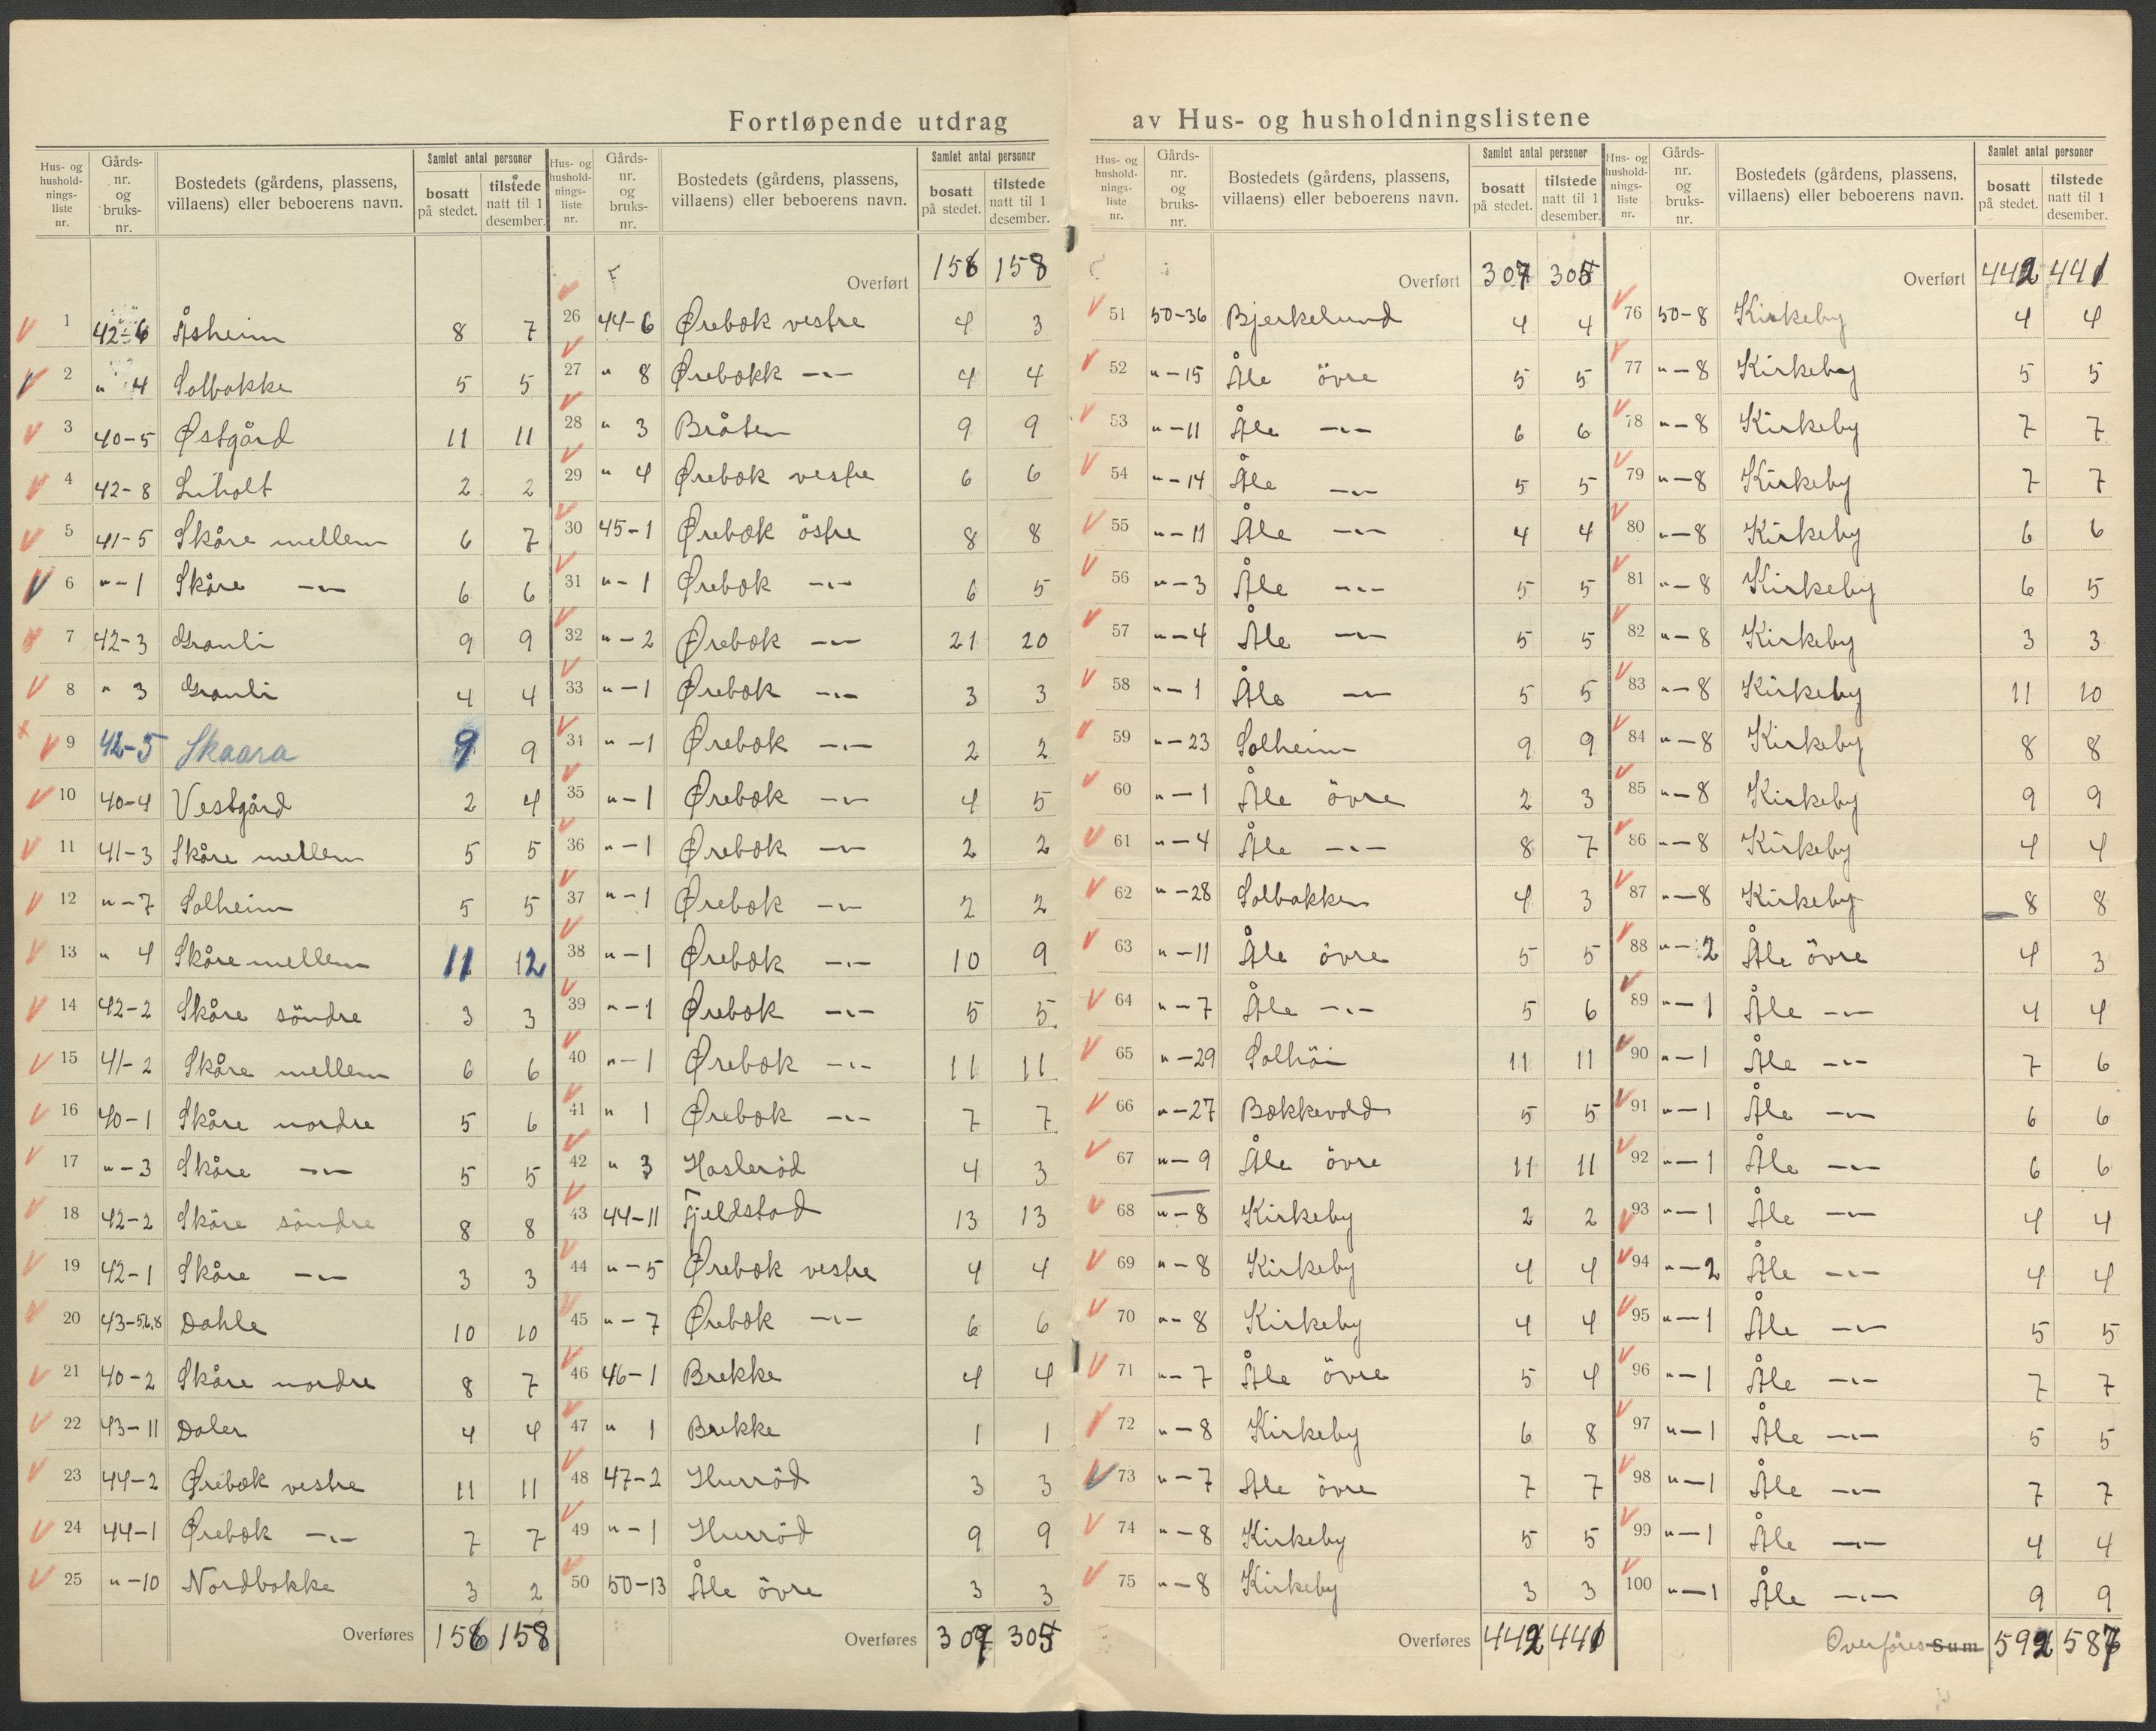 Fortløpende utdrag av Hus- og husholdningslistene
Hus- og husholdnings-liste nr. Gårds-nr. og bruks-nr. Bostedets (gårdens, plassens, villaens) eller beboerens navn. Samlet antal personer bosatt på stedet. tilstede natt til 1 desember.
1 42-6 Åsheim 8 7
2 " 4 Solbakke 5 5
3 40-5 Østgård 11 11
4 42-8 Liholt 2 2
5 41-5 Skåre mellem 6 7
6 "-1 Skåre -"- 6 6
7 42-3 Granli 9 9
8 " 3 Granli 4 4
9 42-5 Skaara 9 9
10 40-4 Vestgård 2 4
11 41-3 Skåre mellem 5 5
12 "-7 Solheim 5 5
13 " 4 Skåre mellem 11 12
14 42-2 Skåre söndre 3 3
15 41-2 Skåre mellem 6 6
16 40-1 Skåre nordre 5 6
17 "-3 Skåre -"- 5 5
18 42-2 Skåre söndre 8 8
19 42-1 Skåre -"- 3 3
20 43-5,6,8 Dahle 10 10
21 40-2 Skåre nordre 8 7
22 43-11 Dalen 4 4
23 44-2 Ørebæk vestre 11 11
24 44-1 Ørebæk -"- 7 7
25 "-10 Nordbakke 3 2
Overføres 156 158
Hus- og husholdnings-liste nr. Gårds-nr. og bruks-nr. Bostedets (gårdens, plassens, villaens) eller beboerens navn. Samlet antal personer bosatt på stedet. tilstede natt til 1 desember.
Overført 156 158
26 44-6 Ørebæk vestre 4 3
27 " 8 Ørebækk -"- 4 4
28 " 3 Bråten 9 9
29 " 4 Ørebæk vestre 6 6
30 45-1 Ørebæk östre 8 8
31 "-1 Ørebæk -"- 6 5
32 "-2 Ørebæk -"- 21 20
33 "-1 Ørebæk -"- 3 3
34 "-1 Ørebæk -"- 2 2
35 "-1 Ørebæk -"- 4 5
36 "-1 Ørebæk -"- 2 2
37 "-1 Ørebæk -"- 2 2
38 "-1 Ørebæk -"- 10 9
39 "-1 Ørebæk -"- 5 5
40 "-1 Ørebæk -"- 11 11
41 " 1 Ørebæk -"- 7 7
42 " 3 Hasleröd 4 3
43 44-11 Fjeldstad 13 13
44 "-5 Ørebæk vestre 4 4
45 "-7 Ørebæk -"- 6 6
46 46-1 Brekke 4 4
47 " 1 Brekke 1 1
48 47-2 Hurröd 3 3
49 "-1 Hurröd 9 9
50 50-13 Åle övre 3 3
Overføres 307 305
Hus- og husholdnings-liste nr. Gårds-nr. og bruks-nr. Bostedets (gårdens, plassens, villaens) eller beboerens navn. Samlet antal personer bosatt på stedet. tilstede natt til 1 desember.
Overført 307 305
51 50-36 Bjerkelund 4 4
52 "-15 Åle övre 5 5
53 "-11 Åle -"- 6 6
54 "-14 Åle -"- 5 5
55 "-11 Åle -"- 4 4
56 "-3 Åle -"- 5 5
57 "-4 Åle -"- 5 5
58 "-1 Åle -"- 5 5
59 "-23 Solheim 9 9
60 "-1 Åle övre 2 3
61 "-4 Åle -"- 8 7
62 "-28 Solbakken 4 3
63 "-11 Åle övre 5 5
64 "-7 Åle -"- 5 6
65 "-29 Solhöi 11 11
66 "-27 Bækkevold 5 5
67 "-9 Åle övre 11 11
68 "-8 Kirkeby 2 2
69 "-8 Kirkeby 4 4
70 "-8 Kirkeby 4 4
71 "-7 Åle övre 5 4
72 "-8 Kirkeby 6 8
73 "-7 Åle övre 7 7
74 "-8 Kirkeby 5 5
75 "-8 Kirkeby 3 3
Overføres 442 441
Hus- og husholdnings-liste nr. Gårds-nr. og bruks-nr. Bostedets (gårdens, plassens, villaens) eller beboerens navn. Samlet antal personer bosatt på stedet. tilstede natt til 1 desember.
Overført 442 441
76 50-8 Kirkeby 4 4
77 "-8 Kirkeby 5 5
78 "-8 Kirkeby 7 7
79 "-8 Kirkeby 7 7
80 "-8 Kirkeby 6 6
81 "-8 Kirkeby 6 5
82 "-8 Kirkeby 3 3
83 "-8 Kirkeby 11 10
84 "-8 Kirkeby 8 8
85 "-8 Kirkeby 9 9
86 "-8 Kirkeby 4 4
87 "-8 Kirkeby 8 8
88 "-2 Åle övre 4 3
89 "-1 Åle -"- 4 4
90 "-1 Åle -"- 7 6
91 "-1 Åle -"- 6 6
92 "-1 Åle -"- 6 6
93 "-1 Åle -"- 4 4
94 "-2 Åle -"- 4 4
95 "-1 Åle -"- 5 5
96 "-1 Åle -"- 7 7
97 "-1 Åle -"- 5 5
98 "-1 Åle -"- 7 7
99 "-1 Åle -"- 4 4
100 "-1 Åle -"- 9 9
Overföres Sum 592 587